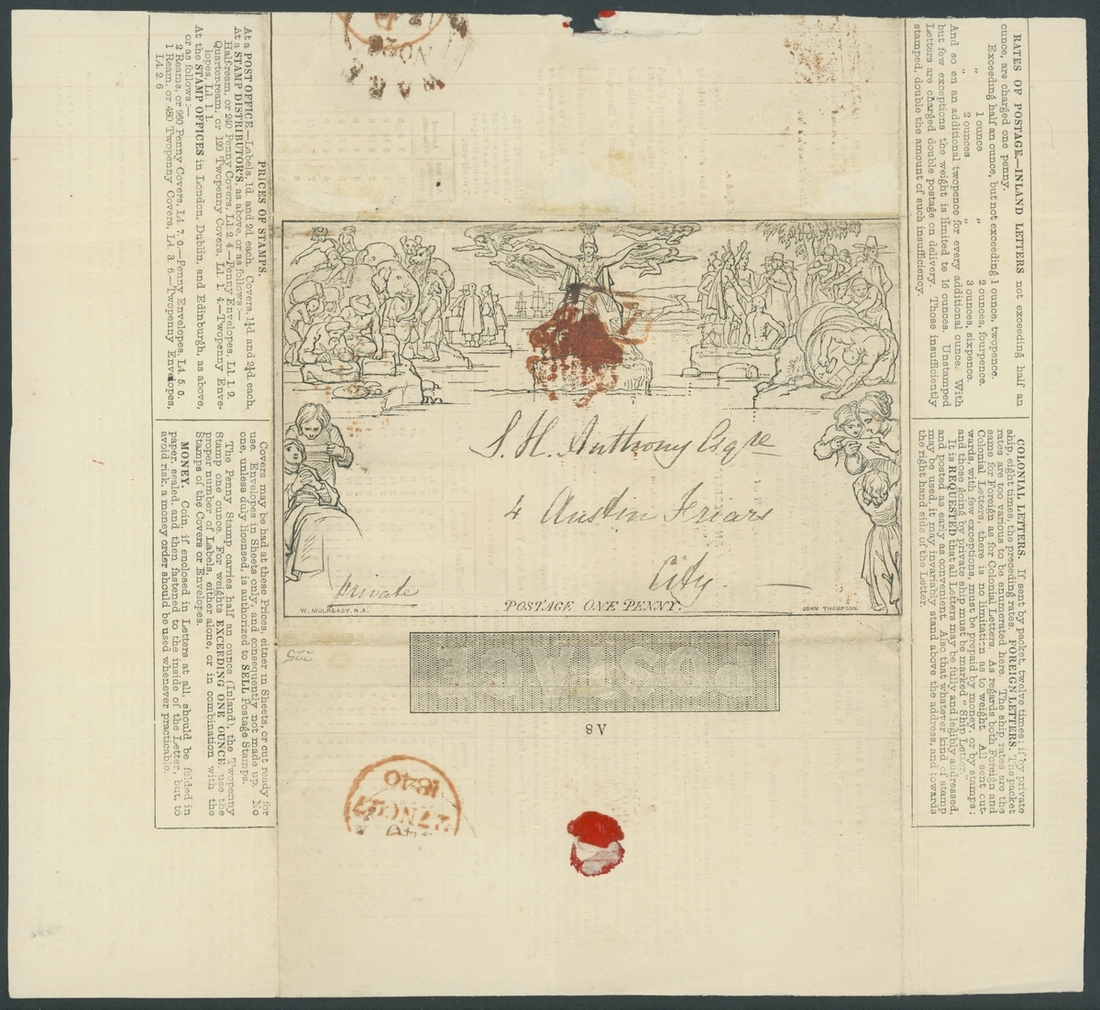 RATES OF POSTAGE.—INLAND LETTERS not exceeding half an
ounce, are charged one penny.
Exceeding half an ounce, but not exceeding 1 ounce, twopence.
„ 1 ounce „ 2 ounces, fourpence.
„ 2 ounces „ 3 ounces, sixpence.
And so on an additional twopence for every additional ounce. With
but few exceptions the weight is limited to 16 ounces. Unstamped
Letters are charged double postage on delivery. Those insufficiently
stamped, double the amount of such insufficiency.
COLONIAL LETTERS. If sent by packet, twelve times; if by private
ship, eight times, the preceding rates. FOREIGN LETTERS. The packet
rates are too various to be enumerated here. The ship rates are the
same for Foreign as for Colonial Letters. As regards both Foreign and
Colonial Letters, there is no limitation as to weight. All sent out-
wards, with few exceptions, must be prepaid by money, or by stamps;
and those going by private ship must be marked "Ship Letter."
It is REQUESTED that all Letters may be fully and legibly addressed,
and posted as early as convenient. Also that whatever kind of stamp
may be used, it may invariably stand above the address, and towards
the right hand side of the Letter.
PRICES OF STAMPS.
At a POST OFFICE—Labels, 1d. and 2d. each. Covers, 1¼d. and 2¼d. each.
At a STAMP DISTRIBUTOR'S, as above, or as follows:—
Half-ream, or 240 Penny Covers, L1 2 4—Penny Envelopes, L1 1 9.
Quarter-ream, or 120 Twopenny Covers, L1 1 4.—Twopenny Enve-
lopes, L1 1 1.
At the STAMP OFFICES in London, Dublin, and Edinburgh, as above,
or as follows:—
2 Reams, or 960 Penny Covers, L4 7 0.—Penny Envelopes, L4 5 0.
1 Ream, or 480 Twopenny Covers, L4 3 6.—Twopenny Envelopes,
L4 2 6
Covers may be had at these Prices, either in Sheets or cut ready for
use. Envelopes in Sheets only, and consequently not made up. No
one, unless duly licensed, is authorized to SELL Postage Stamps.
The Penny Stamp carries half an ounce (Inland), the Twopenny
Stamp one ounce. For weights EXCEEDING ONE OUNCE, use the
proper number of Labels, either alone, or in combination with the
Stamps of the Covers or Envelopes.
MONEY. Coin, if enclosed in Letters at all, should be folded in
paper, sealed, and then fastened to the inside of the Letter; but, to
avoid risk, a money order should be used whenever practicable.
S. H. Anthony Esqre
4 Austin Friars
City
private
W. MULREADY. R.A.
POSTAGE ONE PENNY.
JOHN THOMPSON
POSTAGE
A8
27NO27
1840